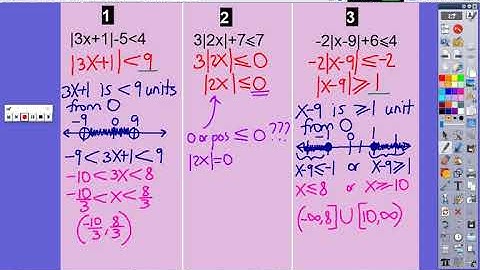 1
|3x+1|-5<4
|3X+1|<9
3X+1 is < 9 units
from 0
-9 0 9
-9<3X+1<9
-10<3X<8
-10/3<X<8/3
(-10/3, 8/3)
2
3|2x|+7≤7
3|2X|≤0
|2X|≤0
0 or pos ≤ 0???
|2X|=0
3
-2|x-9|+6≤4
-2|X-9|≤-2
|X-9|≥1
X-9 is ≥1 unit
from 0
-1 0 1
X-9≤-1 or X-9≥1
X≤8 or X≥-10
(-∞,8]∪[10,∞)